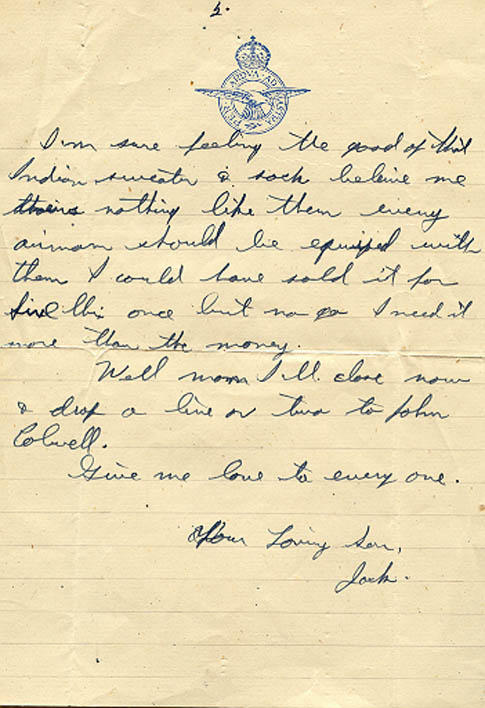 5.
PER ARDUA AD ASTRA
I'm sure feeling the good of that
Indian sweater & sock beleive me
theirs nothing like them every
airmam should be equiped with
them I could have sold it for
five lbs once but no go I need it
more than the money.
Well mom I'll close now
& drop a line or two to John
Colwell.
Give me love to every one.
Your Loving Son,
Jack.